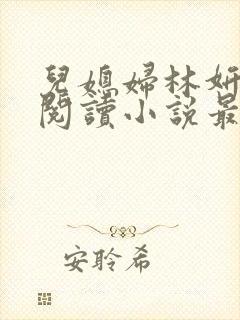 兒媳婦林妍
閱讀小說最
安聆希